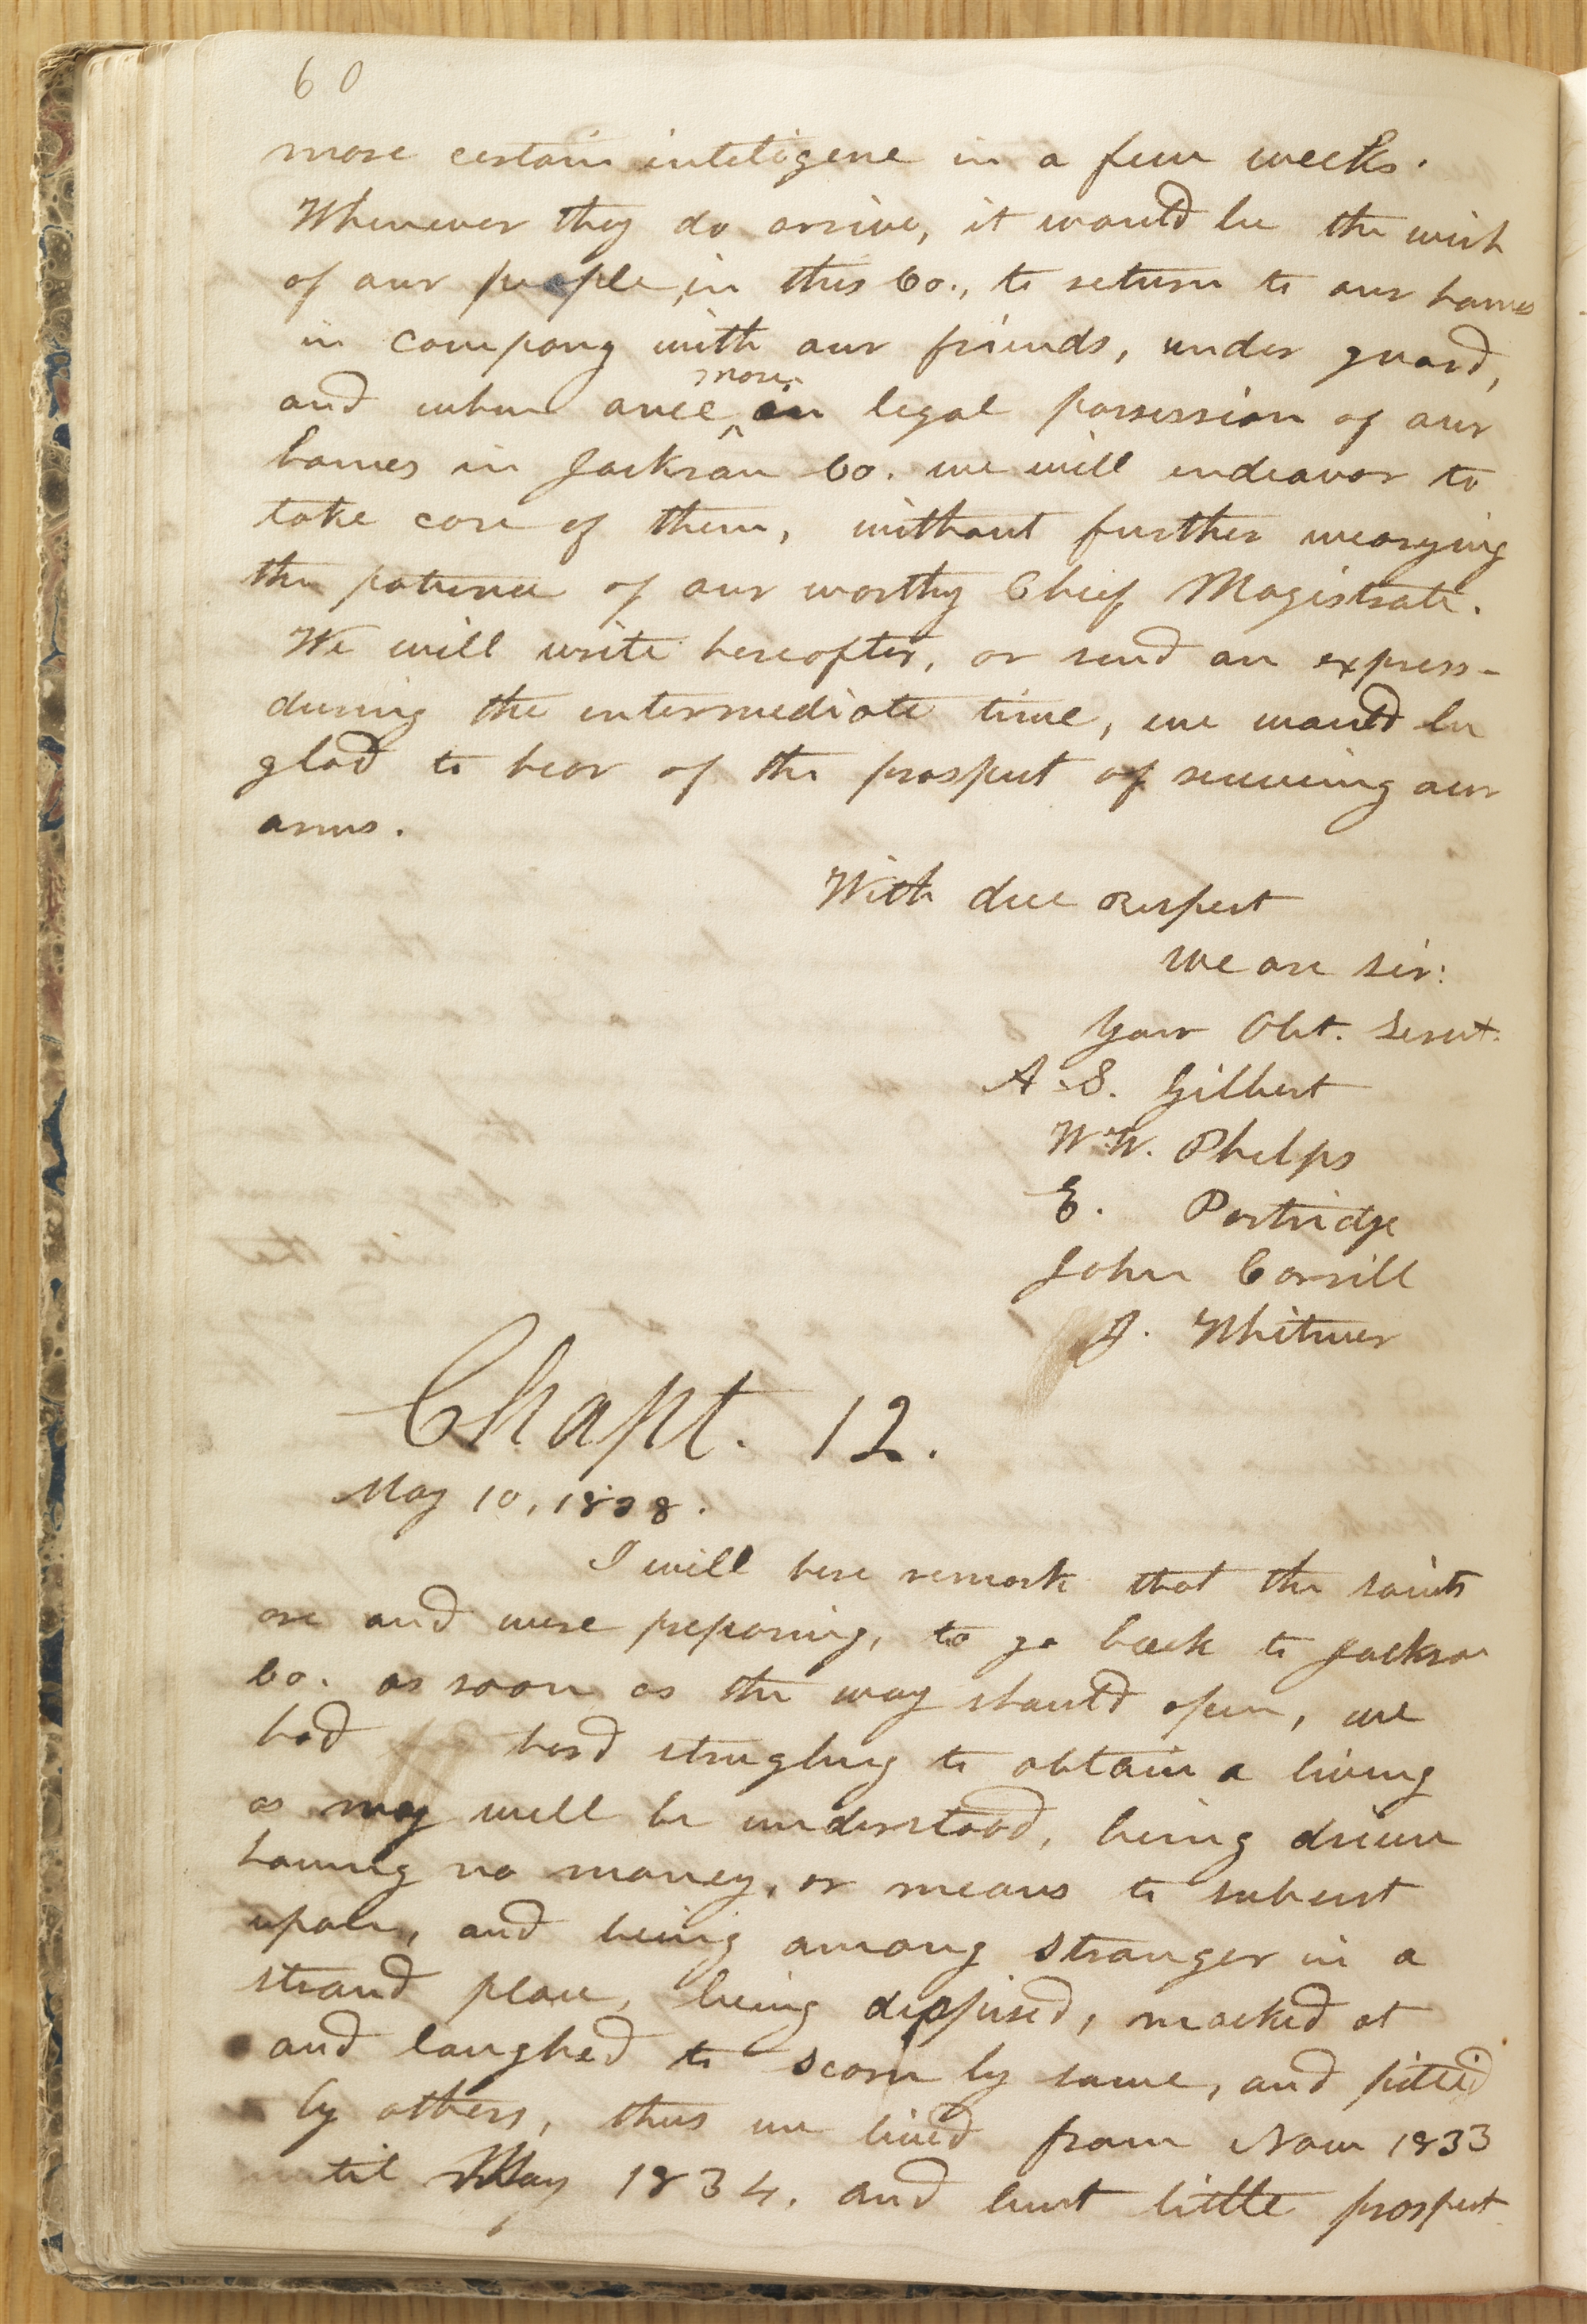 60
more certain inteligene in a few weeks.
Whenever they do arrive, it would be the wish
of our people, in this Co., to return to our homes
in company with our friends, under guard,
more
and when once ^ in legal possession of our
homes in Jackson Co. we will endeavor to
take care of them, without further wearying
the patience of our worthy Chief Magistrate.
We will write hereafter, or send an express-
during the intermediate time, we would be
glad to hear of the prospect of receiving our
arms.
With due respect
we are sir:
Your Obt. Servt.
A. S. Gilbert
W. W. Phelps
E. Partridge
John Corrill
J. Whitmer
Chapt. 12.
May 10, 1838.
I will here remark that the saints
are and were preparing, to go back to Jackson
Co. as soon as the way should open, we
had hard strugling to obtain a living
as may well be understood, being driven
having no money, or means to subsist
upon, and being among stranger in a
strand place, being dispised, mocked at
and laughed to scorn by some, and pitied
by others, thus we lived from Nov 1833
until May 1834, and but little prospect